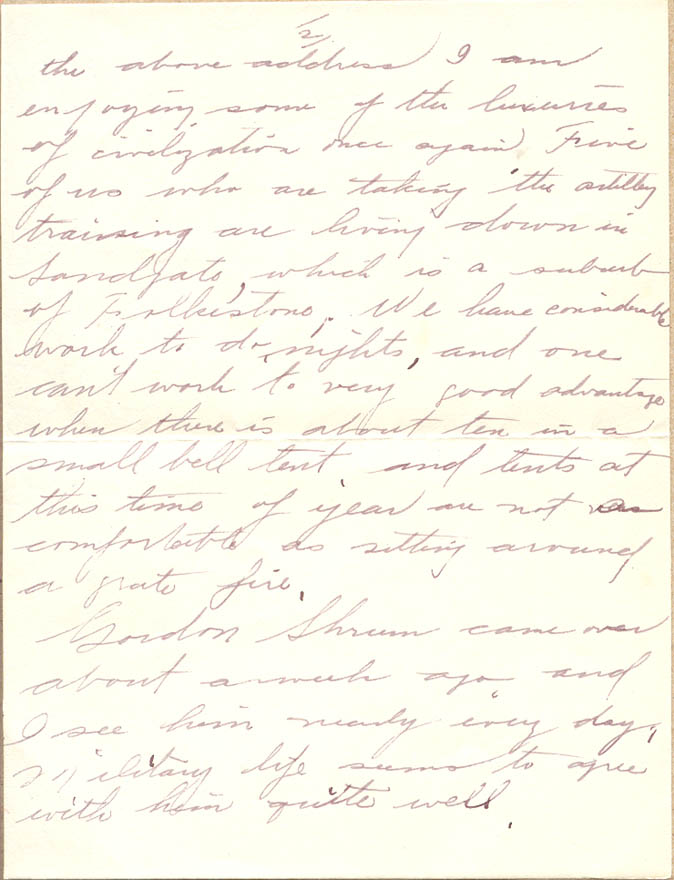 2/
the above address I am
enjoying some of the luxuries
of civilization once again. Five
of us who are taking the artillery
training are living down in
Sandgate, which is a suburb
of Folkestone. We have considerable
work to do, nights, and one
can't work to very good advantage
when there is about ten in a
small bell tent, and tents at
this time of year are not as
comfortable as sitting around
a grate fire.
Gordon Shrum came over
about a week ago and
I see him nearly every day,
Military life seems to agree
with him quite well.